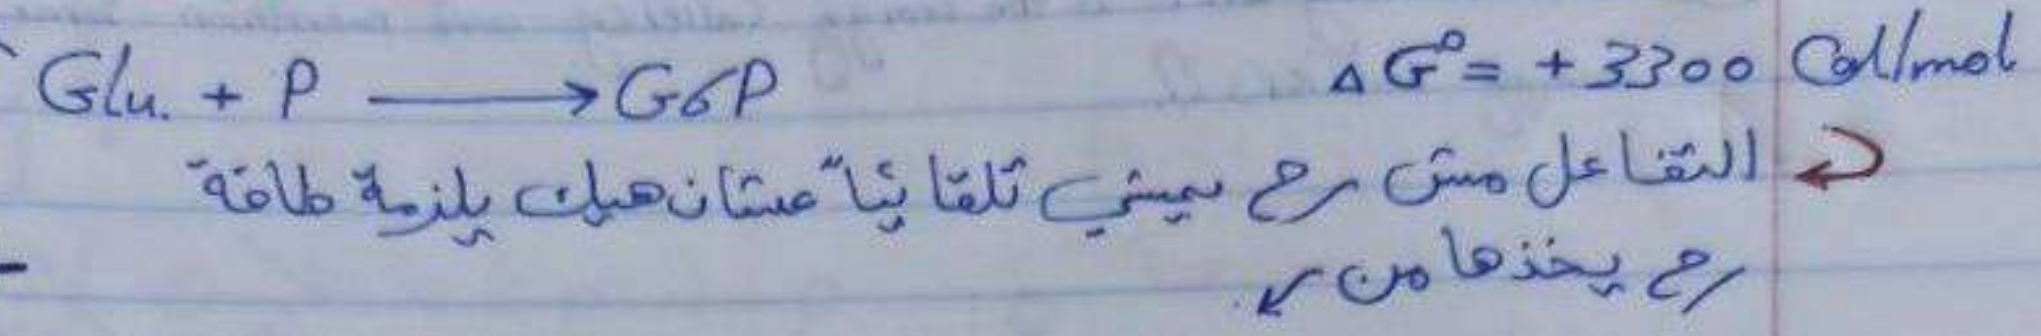 Glu. + P ⟶ G6P ΔG° = + 3300 Cal/mol
التفاعل مش رح يمشي تلقائياً عشان هيك يلزمة طاقة
رح يخذها من ↙